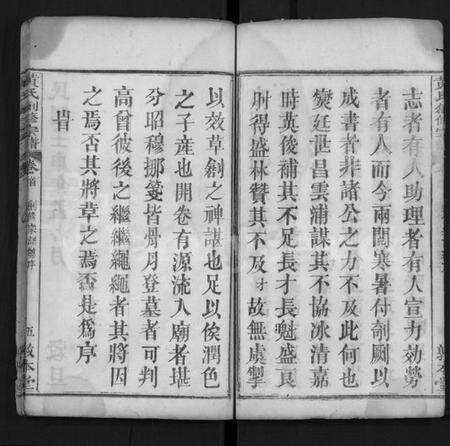 志者有人助理者有人宣力効勞
者有人而今兩閱寒暑付剞劂以
成書者非諸公之力不及此何也
燮廷世昌雲浦謀其不協冰清嘉
時英俊補其不足長才長魁盛良
則得盛林贊其不及才故無虞掣
以效草創之神諶也足以俟潤色
之子産也開卷有源流入廟者堪
分昭穆挪箋皆骨月登墓者可判
高曾彼後之繼繼繩繩者其將因
之焉否其將草之焉否是為序
旹
黃氏創修宗譜
卷首
五
敦本堂